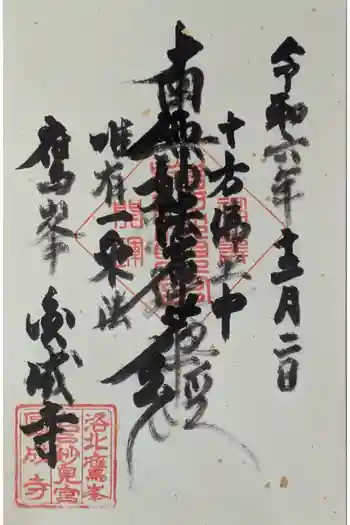 令和六年十二月二日
十方佛土中
南無妙法蓮華経
唯有一乗法
鷹峯
圓成寺
洛北鷹峯
岩戸妙見宮
圓成寺
開運